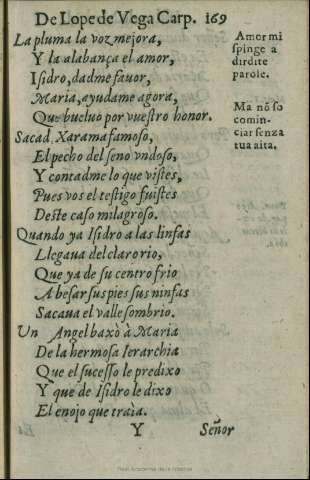 De Lope de Vega Carp. 169
La pluma la voz mejora,
Y la alabança el amor,
Isidro, dadme fauor,
Maria, ayudame agora,
Que bueluo por vuestro honor.
Sacad Xarama famoso,
El pecho del seno vndoso,
Y contadme lo que vistes,
Pues vos el testigo fuistes
Deste caso milagroso.
Quando ya Isidro a las linfas
Llegaua del claro rio,
Que ya de su centro frio
A besar sus pies sus ninfas
Sacaua el valle sombrio.
Un Angel baxò à Maria
De la hermosa Ierarchia
Que el sucesso le predixo
Y que de Isidro le dixo
El enojo que traìa.
Y Señor
Amor mi
spinge a
dir dite
parole.
Ma nõ so
comin-
ciar senza
tua aita.